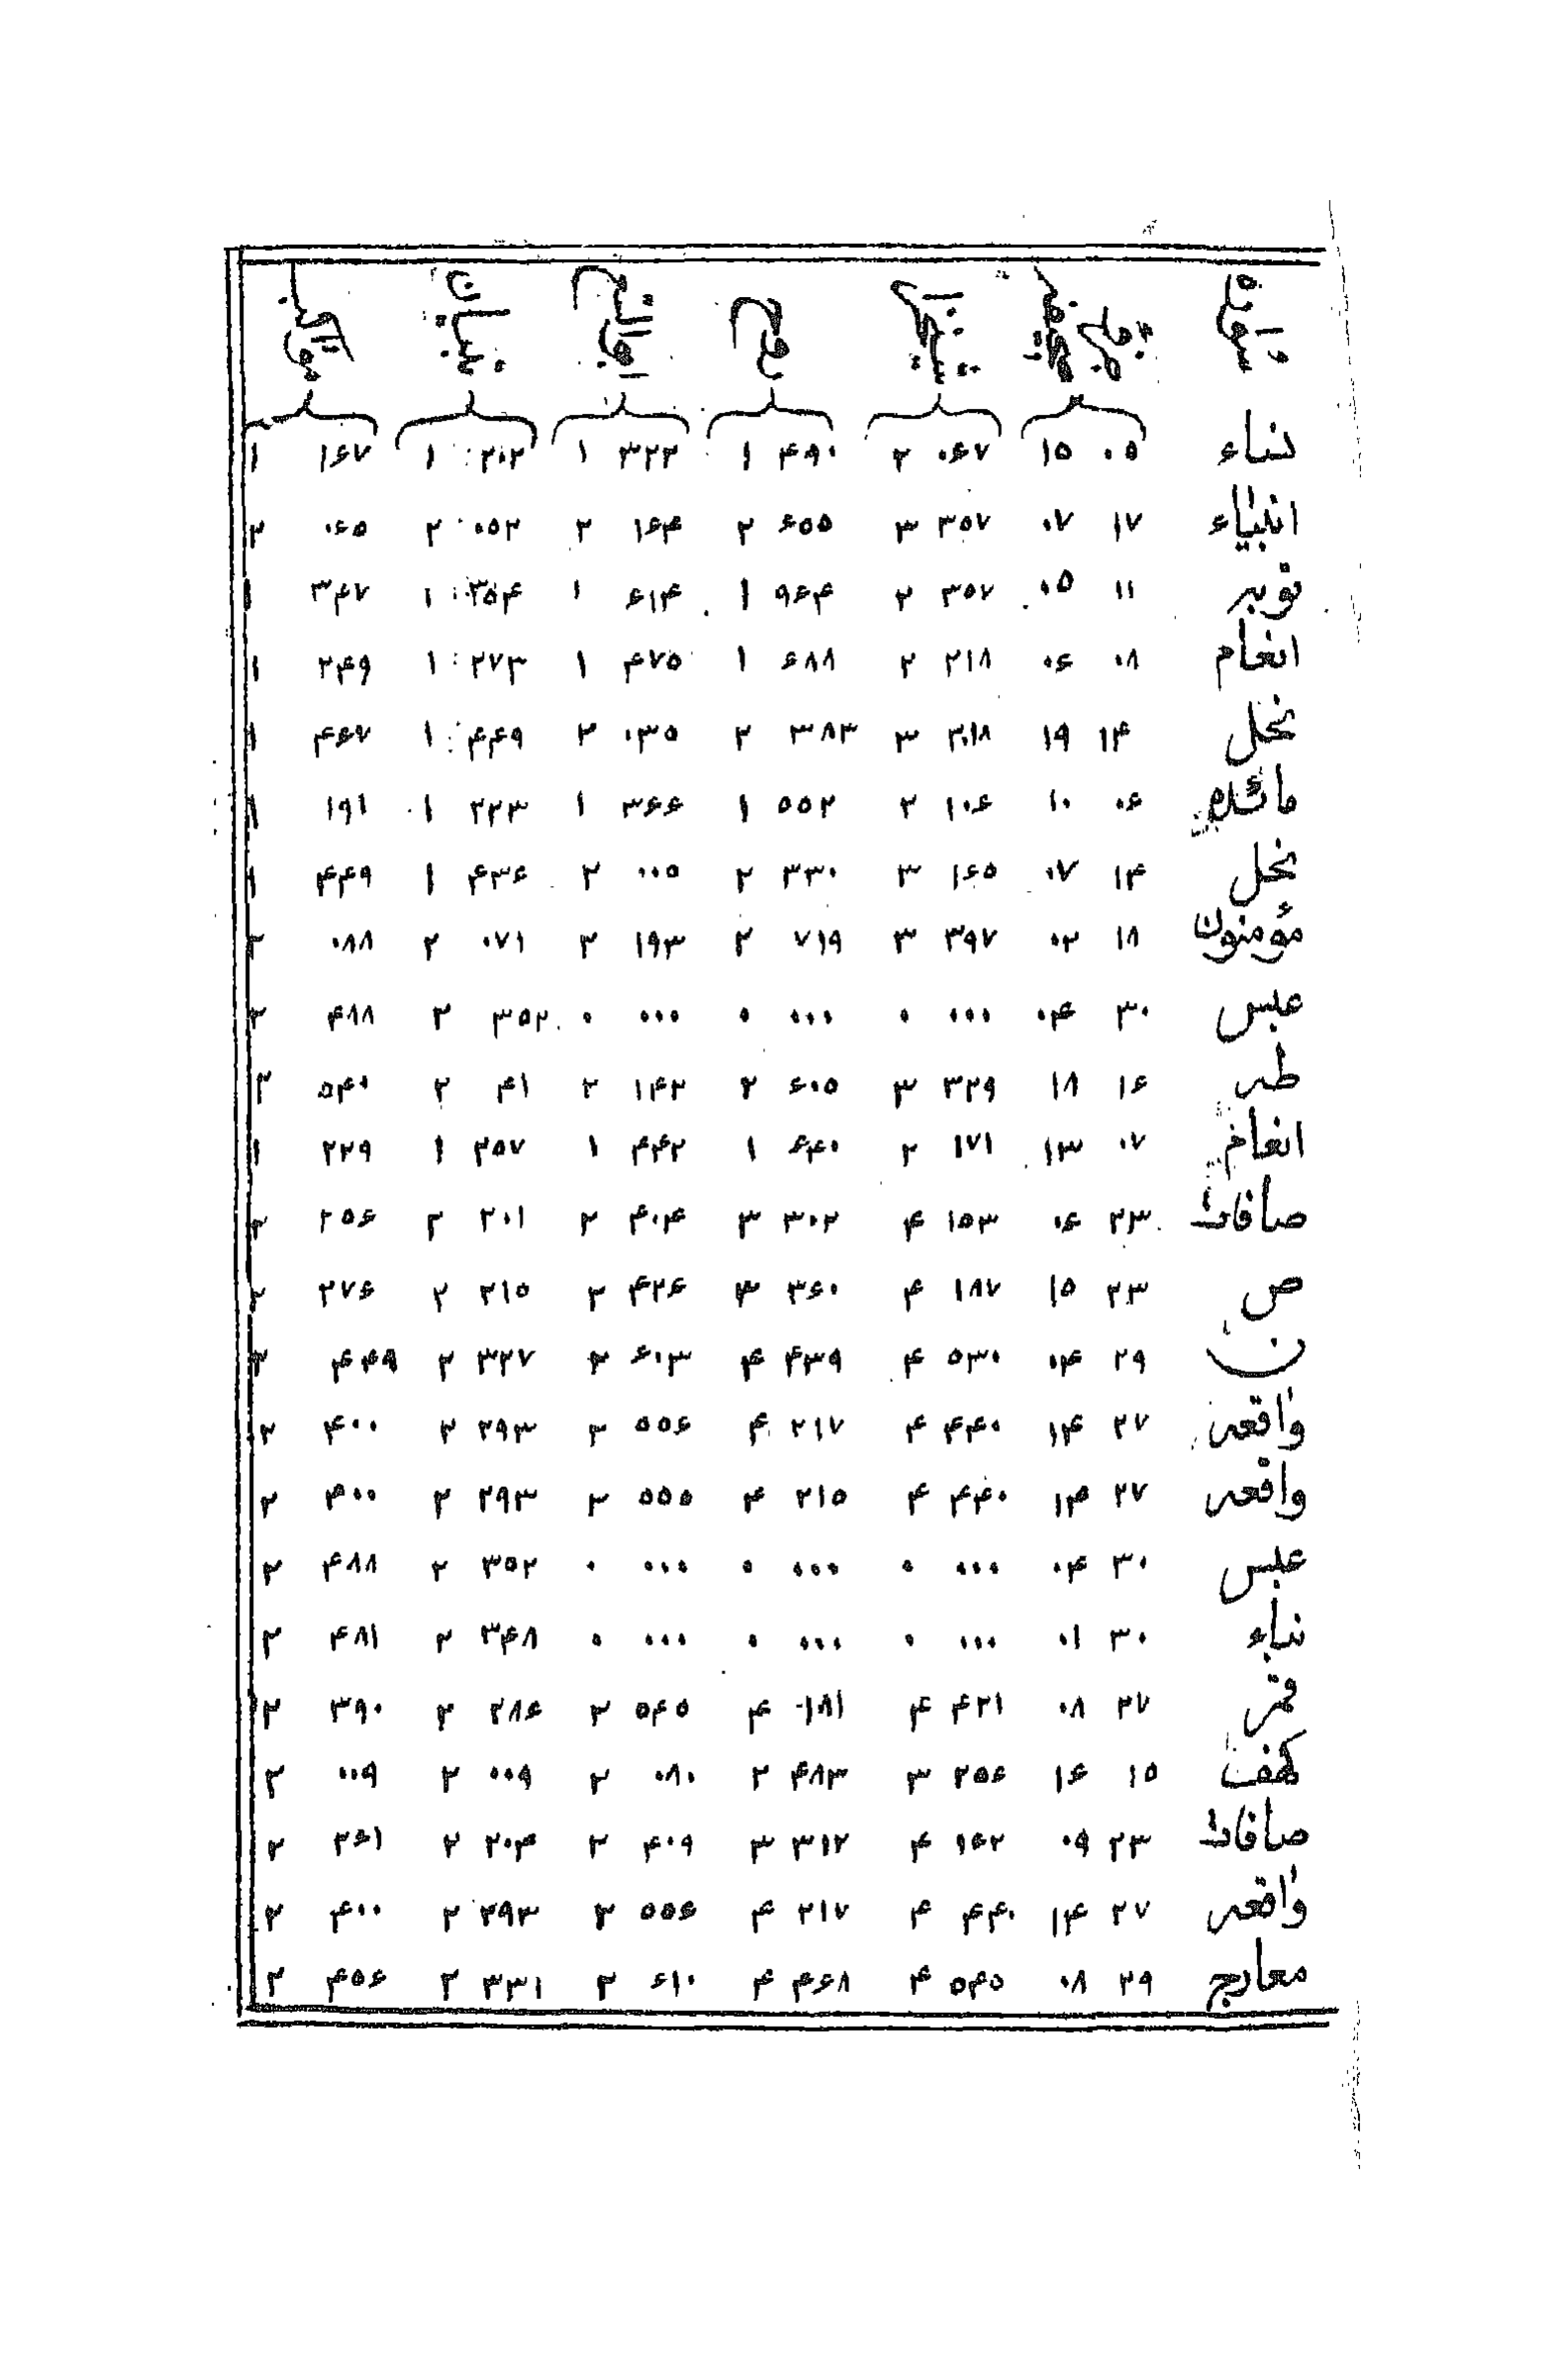 نساء ۰۵ ۱۵ ۰۶۷ ۲ ۴۹۰ ۱ ۳۲۲ ۱ ۲۰۲ ۱ ۱۶۷ ۱
انبیاء ۱۷ ۰۷ ۳۵۷ ۳ ۶۵۵ ۲ ۱۶۴ ۲ ۰۵۲ ۲ ۰۶۵ ۲
توبه ۱۱ ۰۵ ۳۵۷ ۲ ۹۶۴ ۱ ۶۱۴ ۱ ۳۵۴ ۱ ۳۴۷ ۱
انعام ۰۸ ۰۶ ۲۱۸ ۲ ۶۸۸ ۱ ۴۷۵ ۱ ۲۷۳ ۱ ۲۴۹ ۱
نحل ۱۴ ۱۹ ۲۰۱۸ ۳ ۳۸۳ ۲ ۰۳۵ ۲ ۴۴۹ ۱ ۴۶۷ ۱
مائده ۰۶ ۱۰ ۱۰۶ ۲ ۵۵۲ ۱ ۳۶۶ ۱ ۲۲۳ ۱ ۱۹۱ ۱
نحل ۱۴ ۰۷ ۱۶۵ ۳ ۳۳۰ ۲ ۰۰۵ ۲ ۴۳۶ ۱ ۴۴۹ ۱
مؤمنون ۱۸ ۰۲ ۳۹۷ ۳ ۷۱۹ ۲ ۱۹۳ ۲ ۰۷۱ ۲ ۰۸۸ ۲
عبس ۳۰ ۰۴ ۰۰۰ ۰ ۰۰۰ ۰ ۰۰۰ ۰ ۳۵۲ ۲ ۴۸۸ ۲
طه ۱۶ ۱۸ ۳۲۹ ۳ ۶۰۵ ۲ ۱۴۲ ۲ ۴۱ ۲ ۵۴۰ ۲
انعام ۰۷ ۱۳ ۱۷۱ ۲ ۶۴۰ ۱ ۴۴۲ ۱ ۲۵۷ ۱ ۲۲۹ ۱
صافات ۲۳ ۰۶ ۱۵۳ ۴ ۳۰۲ ۳ ۴۰۴ ۲ ۲۰۱ ۲ ۲۵۶ ۲
ص ۲۳ ۱۵ ۱۸۷ ۴ ۳۶۰ ۳ ۴۲۶ ۲ ۲۱۵ ۲ ۲۷۶ ۲
ن ۲۹ ۰۴ ۵۳۰ ۴ ۴۳۹ ۴ ۶۰۳ ۲ ۳۲۷ ۲ ۴۴۹ ۲
واقعه ۲۷ ۱۴ ۴۴۰ ۴ ۲۱۷ ۴ ۵۵۶ ۲ ۲۹۳ ۲ ۴۰۰ ۲
واقعه ۲۷ ۱۴ ۴۴۰ ۴ ۲۱۵ ۴ ۵۵۵ ۲ ۲۹۳ ۲ ۴۰۰ ۲
عبس ۳۰ ۰۴ ۰۰۰ ۰ ۰۰۰ ۰ ۰۰۰ ۰ ۳۵۲ ۲ ۴۸۸ ۲
نباء ۳۰ ۰۱ ۰۰۰ ۰ ۰۰۰ ۰ ۰۰۰ ۰ ۳۴۸ ۲ ۴۸۱ ۲
قمر ۲۷ ۰۸ ۴۲۱ ۴ ۱۸۱ ۴ ۵۴۵ ۲ ۲۸۶ ۲ ۳۹۰ ۲
کهف ۱۵ ۱۶ ۲۵۶ ۳ ۴۸۳ ۲ ۰۸۰ ۲ ۰۰۹ ۲ ۰۰۹ ۲
صافات ۲۳ ۰۹ ۱۶۲ ۴ ۳۱۲ ۳ ۴۰۹ ۲ ۲۰۴ ۲ ۲۶۱ ۲
واقعه ۲۷ ۱۴ ۴۴۰ ۴ ۲۱۷ ۴ ۵۵۶ ۲ ۲۹۳ ۲ ۴۰۰ ۲
معارج ۲۹ ۰۸ ۵۴۵ ۴ ۴۶۸ ۴ ۶۱۰ ۲ ۳۳۱ ۲ ۴۵۶ ۲